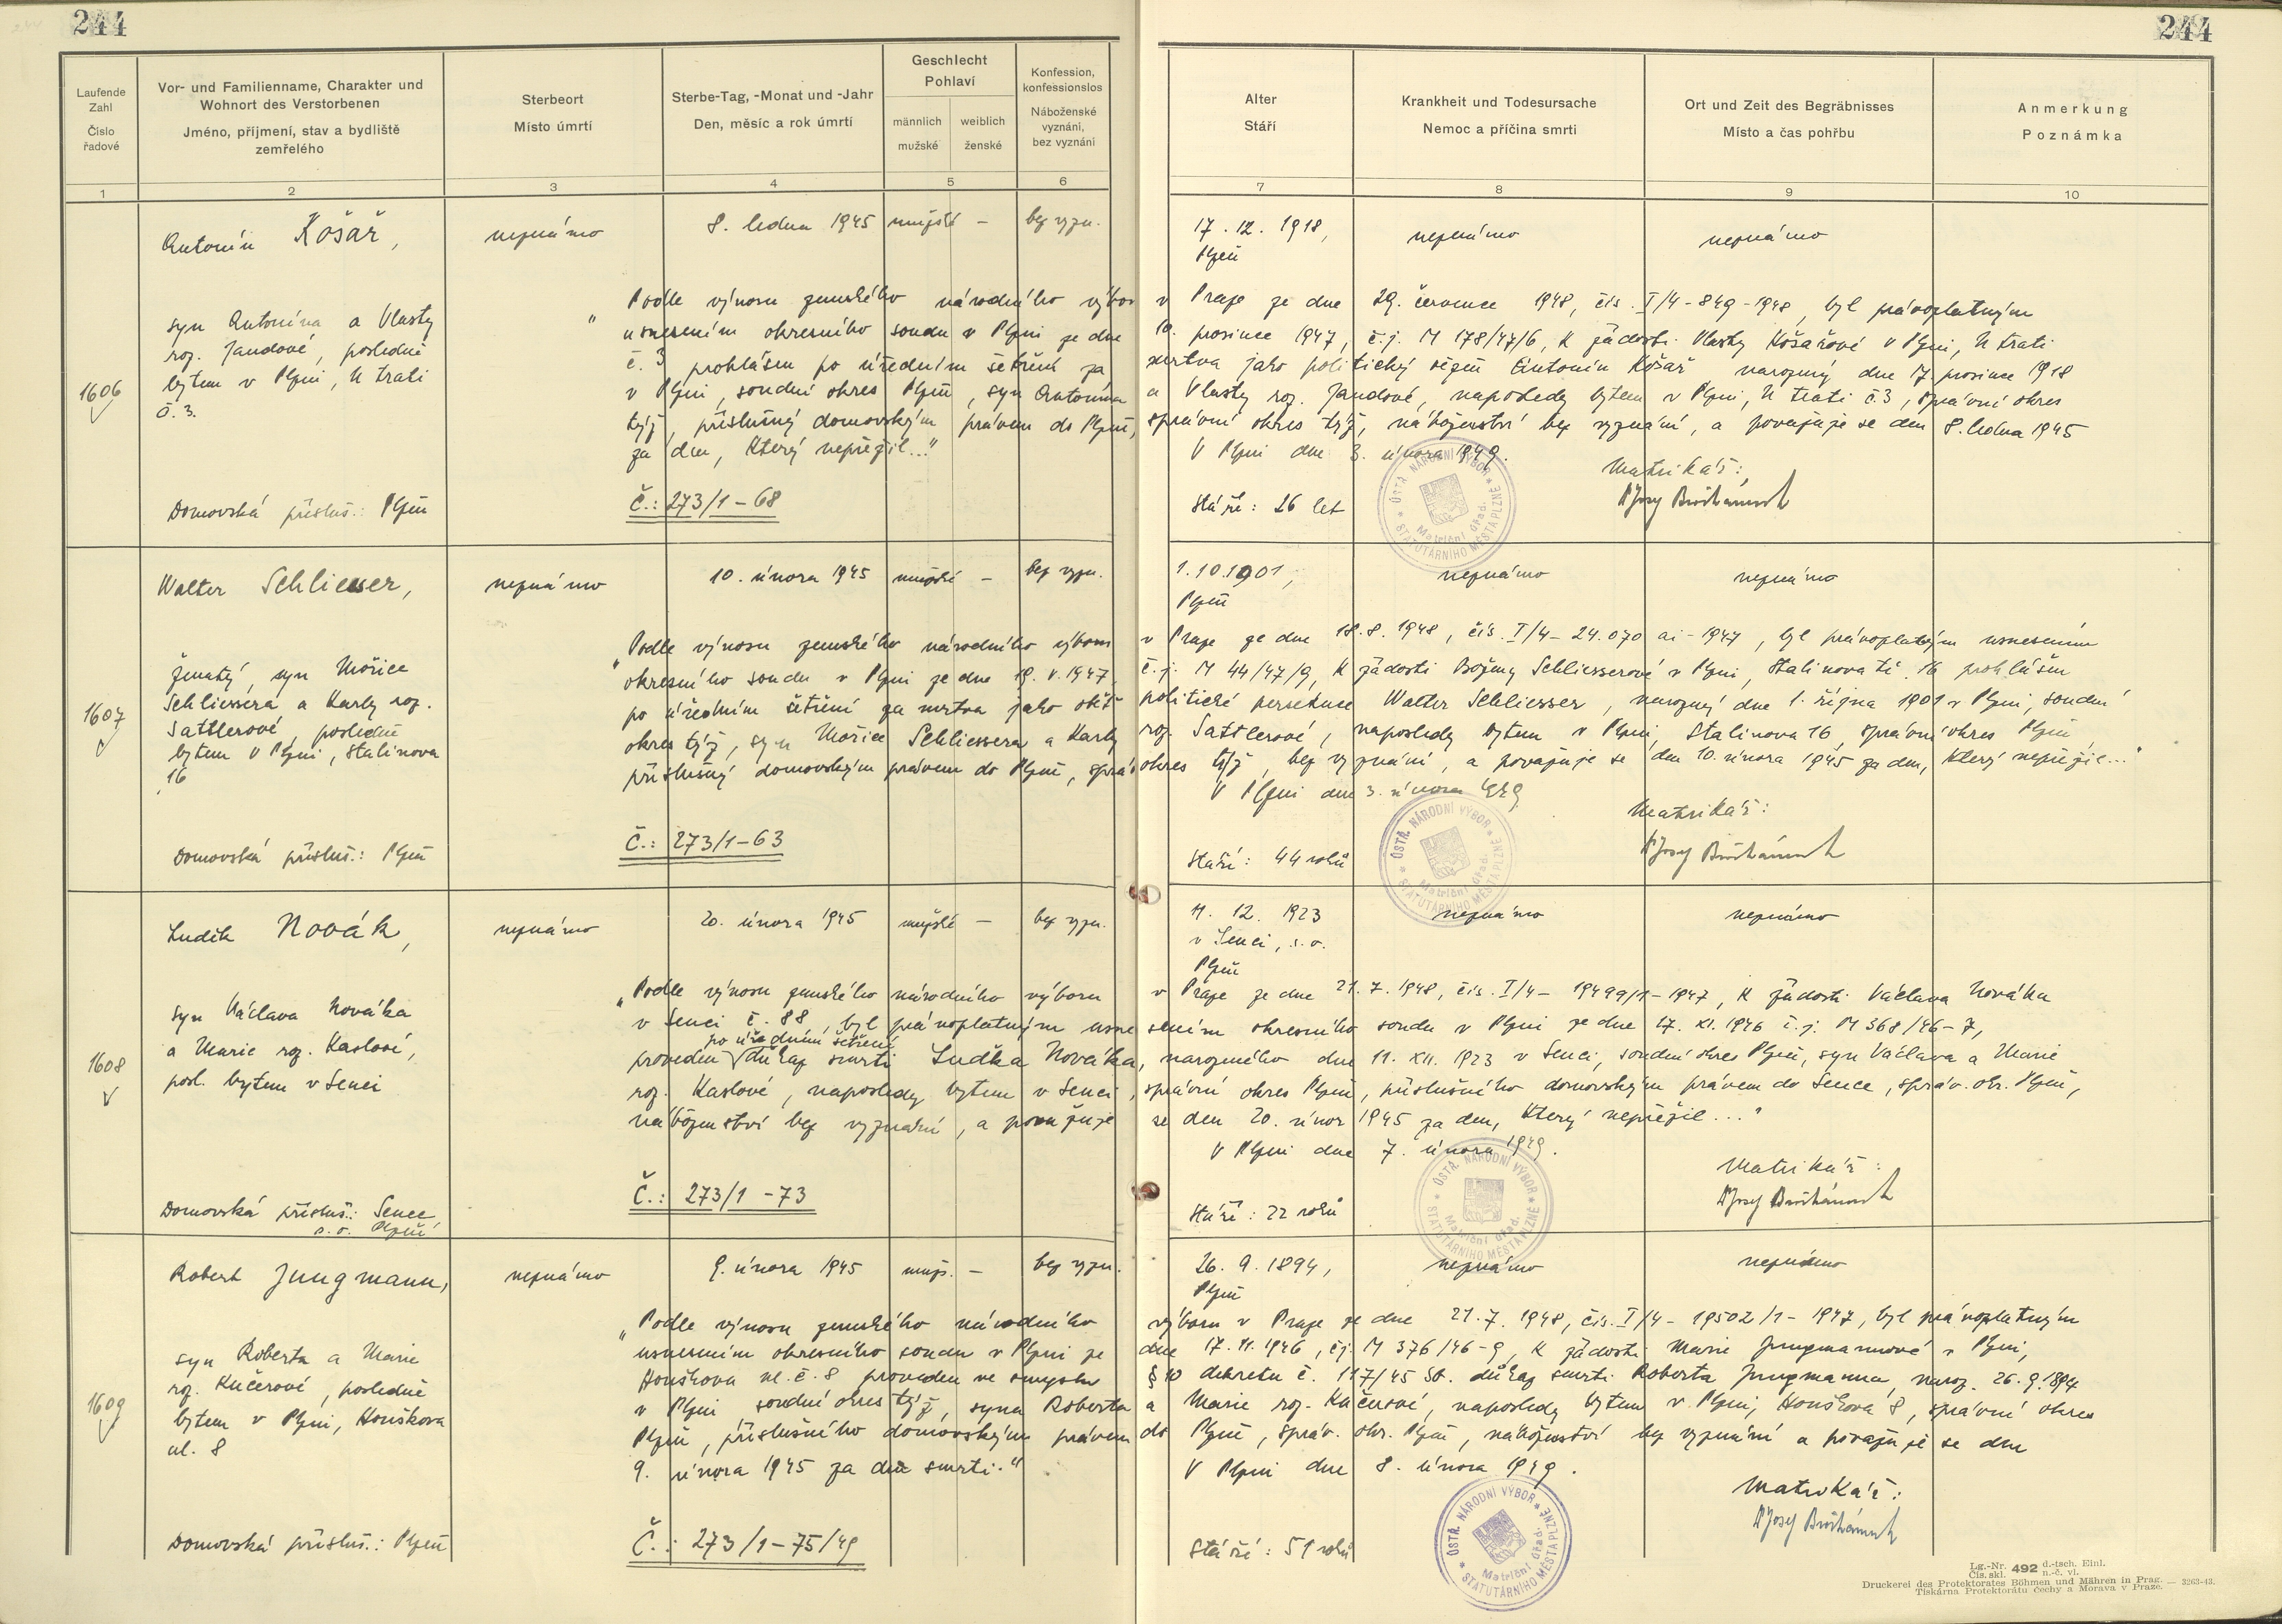 244
244
Laufende Zahl
Číslo řadové
Vor- und Familienname, Charakter und Wohnort des Verstorbenen
Jméno, příjmení, stav a bydliště zemřelého
Sterbeort
Místo úmrtí
Sterbe-Tag, -Monat und -Jahr
Den, měsíc a rok úmrtí
Geschlecht
Pohlaví
männlich
mužské
weiblich
ženské
Konfession, konfessionslos
Náboženské vyznání, bez vyznání
Alter
Stáří
Krankheit und Todesursache
Nemoc a příčina smrti
Ort und Zeit des Begräbnisses
Místo a čas pohřbu
Anmerkung
Poznámka
1 2 3 4 5 6 7 8 9 10
1606
Antonín Košař,
neznámo
8. ledna 1945
mužské –
bez vyzn.
17. 12. 1918,
Plzeň
neznámo
neznámo
syn Antonína a Vlasty
roz. Jandové, posledně
bytem v Plzni, U trati
č. 3.
Domovská přísluš.: Plzeň
„Podle výnosu zemského národního výboru v Praze ze dne 29. července 1948, čís. I/4-849-1948, byl právoplatným
usnesením okresního soudu v Plzni ze dne 10. prosince 1947, č.j. M 178/47/6, k žádosti Vlasty Košařové v Plzni, U trati
č. 3 prohlášen po úředním šetření za mrtva jako politický vězeň Antonín Košař narozený dne 17. prosince 1918
v Plzni, soudní okres Plzeň, syn Antonína a Vlasty roz. Jandové, naposledy bytem v Plzni, U trati č. 3, správní okres
týž, příslušný domovským právem do Plzně, správní okres týž, náboženství bez vyznání, a považuje se den 8. ledna 1945
za den, který nepřežil..."
V Plzni dne 3. února 1949.
Č.: 273/1-68
Stáří: 26 let
Matrikář:
1607
Walter Schliesser,
neznámo
10. února 1945
mužské –
bez vyzn.
1.10.1901,
Plzeň
neznámo
neznámo
ženatý, syn Mořice
Schliessera a Karly roz.
Sattlerové, posledně
bytem v Plzni, Stalinova
16
Domovská přísluš.: Plzeň
„Podle výnosu zemského národního výboru v Praze ze dne 18.8.1948, čís. I/4-24.070 ai-1947, byl právoplatným usnesením
okresního soudu v Plzni ze dne 19. V. 1947, č.j. M 44/47/9, k žádosti Boženy Schliesserové v Plzni, Stalinova tř. 16 prohlášen
po úředním šetření za mrtva jako oběť politické persekuce Walter Schliesser, narozený dne 1. října 1901 v Plzni, soudní
okres týž, syn Mořice Schliessera a Karly roz. Sattlerové, naposledy bytem v Plzni, Stalinova 16, správní okres Plzeň,
příslušný domovským právem do Plzně, správ. okres týž, bez vyznání, a považuje se den 10. února 1945 za den, který nepřežil..."
V Plzni dne 3. února 1949
Č.: 273/1-63
Stáří: 44 roků
Matrikář:
1608
Luděk Novák,
neznámo
20. února 1945
mužské –
bez vyzn.
11. 12. 1923
v Senci, s.o.
Plzeň
neznámo
neznámo
syn Václava Nováka
a Marie roz. Kaslové,
posl. bytem v Senci
Domovská přísluš.: Senec
s.o. Plzeň
„Podle výnosu zemského národního výboru v Praze ze dne 21.7.1948, čís. I/4-19499/1-1947, k žádosti Václava Nováka
v Senci č. 88, byl právoplatným usnesením okresního soudu v Plzni ze dne 27. XI. 1946 č.j. M 368/46-7,
po úředním šetření
proveden důkaz smrti Luďka Nováka, narozeného dne 11. XII. 1923 v Senci, soudní okres Plzeň, syn Václava a Marie
roz. Kaslové, naposledy bytem v Senci, správní okres Plzeň, příslušného domovským právem do Sence, správ. okr. Plzeň,
náboženství bez vyznání, a považuje se den 20. únor 1945 za den, který nepřežil..."
V Plzni dne 7. února 1949.
Č.: 273/1-73
Stáří: 22 roků
Matrikář:
1609
Robert Jungmann,
neznámo
9. února 1945
muž. –
bez vyzn.
26. 9. 1894,
Plzeň
neznámo
neznámo
syn Roberta a Marie
roz. Kučerové, posledně
bytem v Plzni, Houškova
ul. 8
Domovská přísluš.: Plzeň
„Podle výnosu zemského národního výboru v Praze ze dne 21.7.1948, čís. I/4-19502/1-1947, byl právoplatným
usnesením okresního soudu v Plzni ze dne 17.11.1946, čj. M 376/46-9, k žádosti Marie Jungmannové v Plzni,
Houškova ul. č. 8 proveden ve smyslu § 10 dekretu č. 117/45 Sb. důkaz smrti Roberta Jungmanna, naroz. 26.9.1894
v Plzni soudní okres týž, syna Roberta a Marie roz. Kučerové, naposledy bytem v Plzni, Houškova 8, správní okres
Plzeň, příslušného domovským právem do Plzně, správ. okr. Plzeň, náboženství bez vyznání a považuje se den
9. února 1945 za den smrti."
V Plzni dne 8. února 1949.
Č.: 273/1-75/49
Stáří: 51 roků
Matrikář:
ÚSTŘ. NÁRODNÍ VÝBOR * STATUTÁRNÍHO MĚSTA PLZNĚ *
Matriční úřad.
Lg.-Nr. 492 d.-tsch. Einl.
Čís. skl. n.-č. vl.
Druckerei des Protektorates Böhmen und Mähren in Prag. — 3263-43.
Tiskárna Protektorátu Čechy a Morava v Praze.